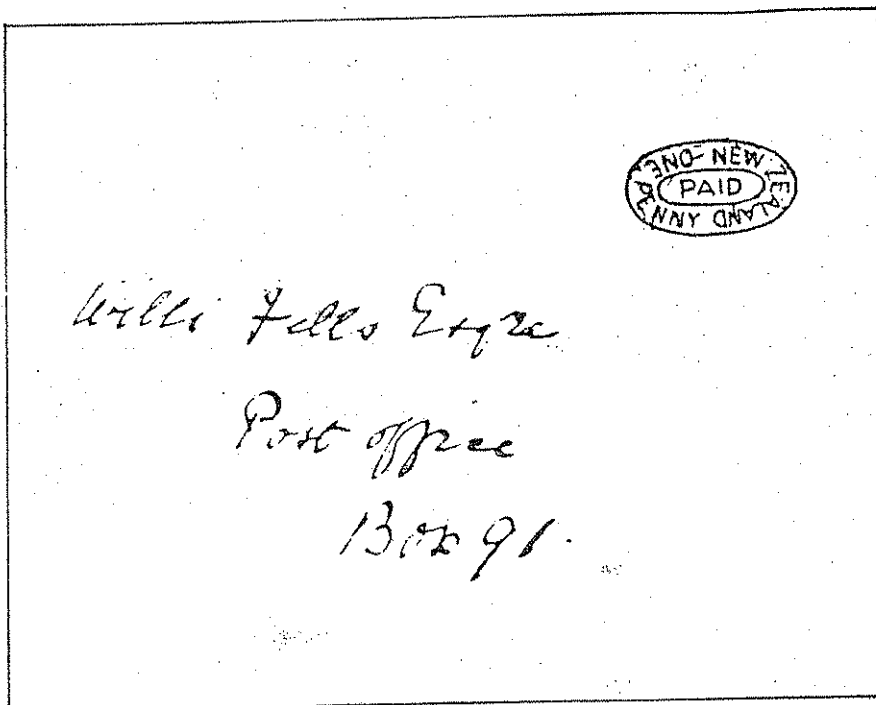 NEW ZEALAND
ONE PENNY
PAID
Willi Fells Esqre
Post office
Box 91.